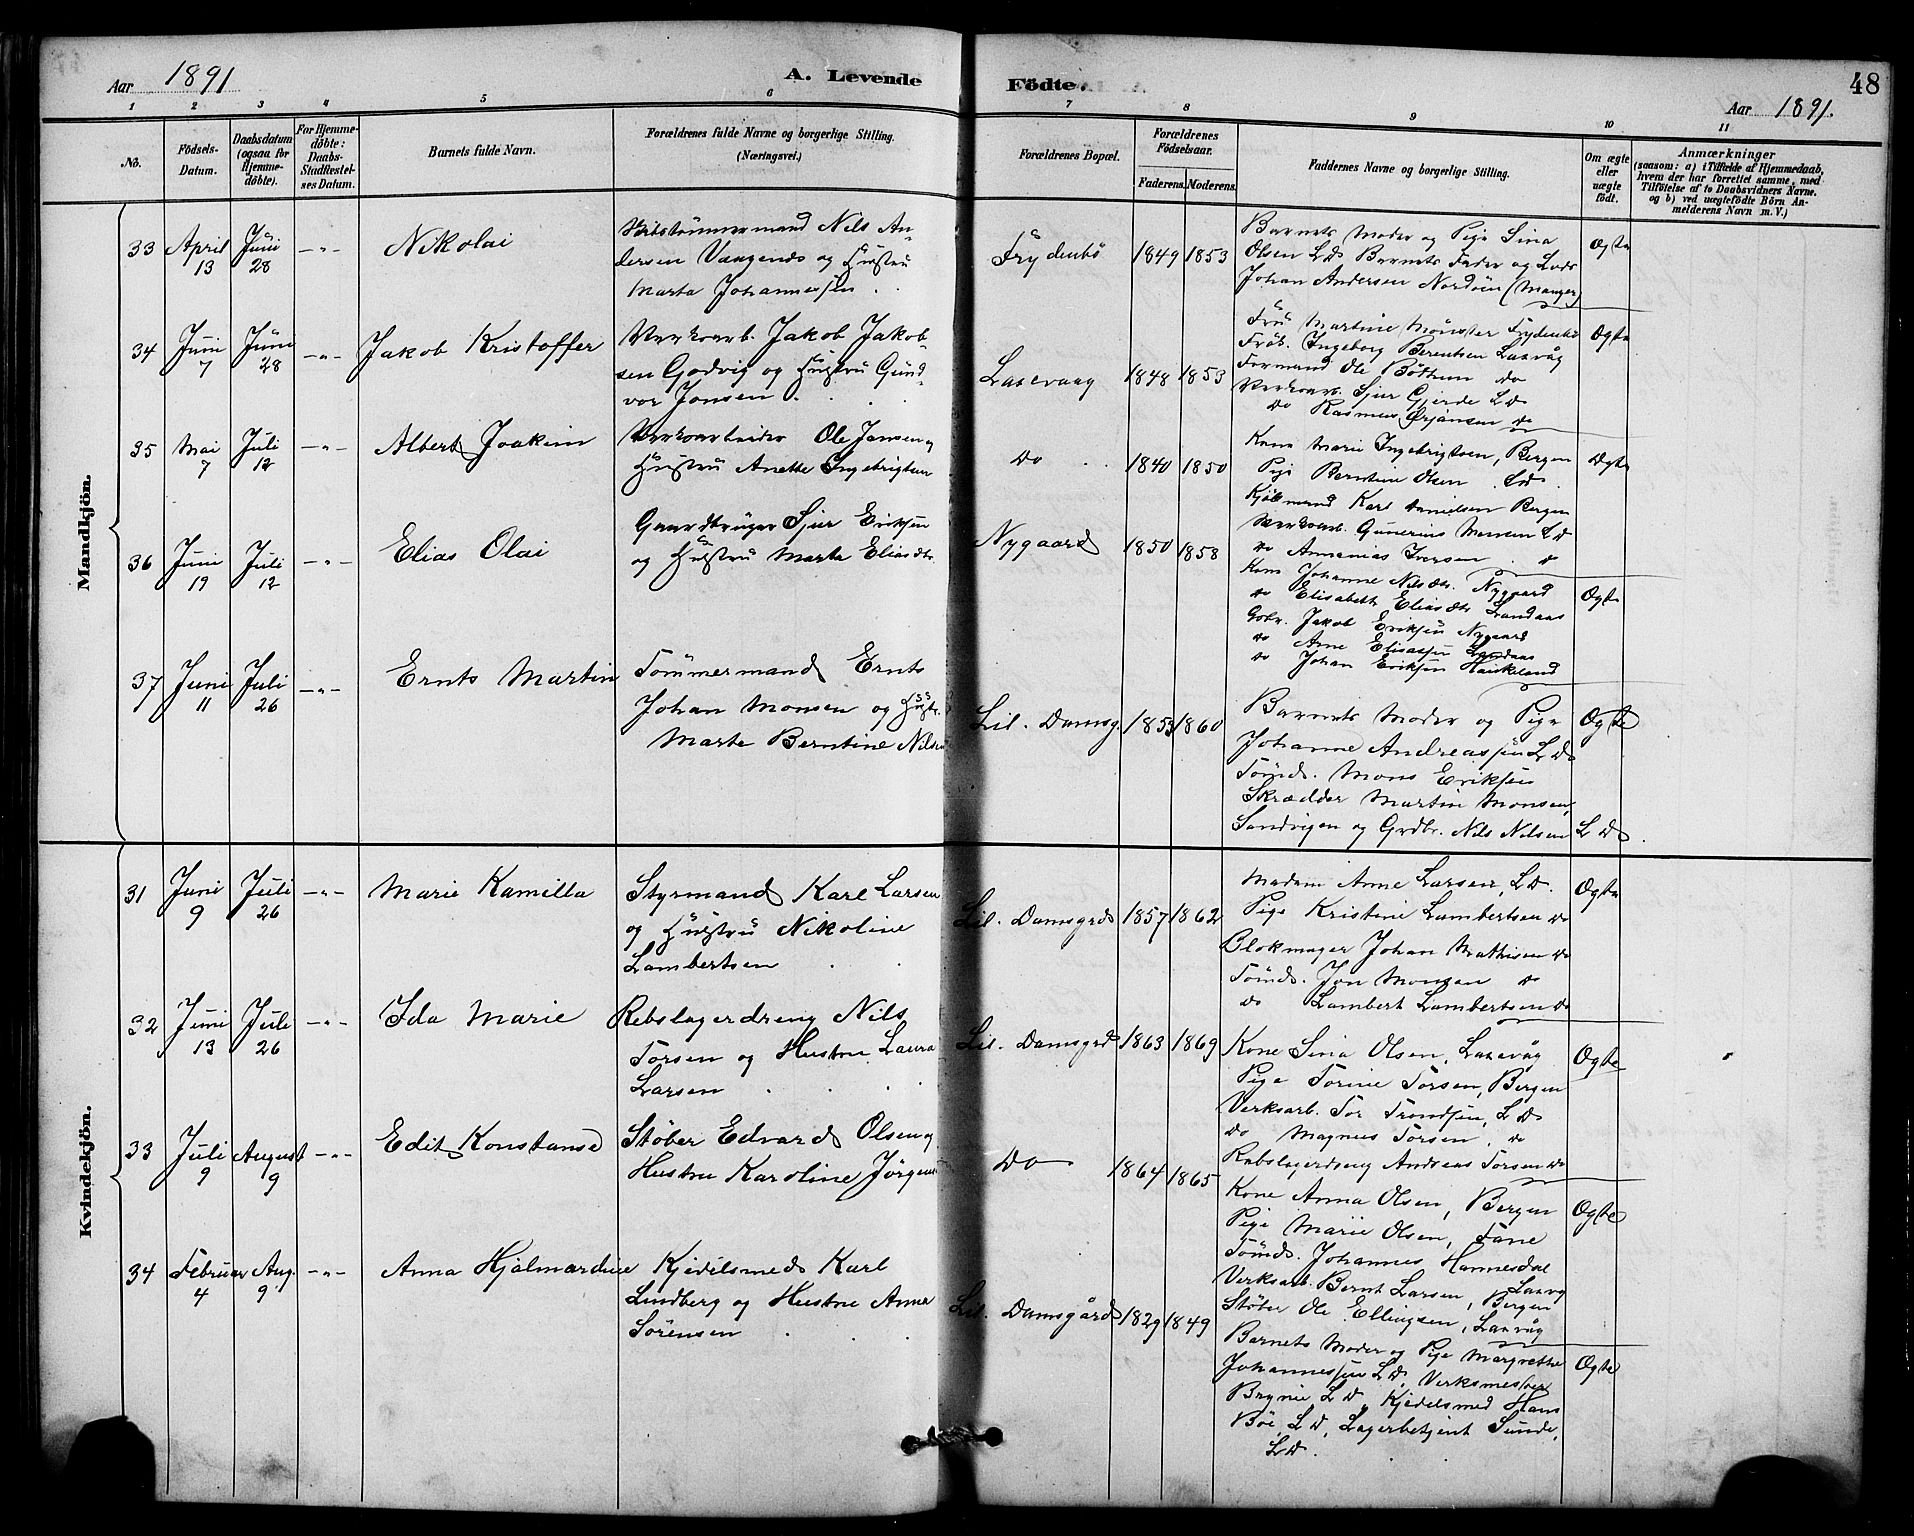 Aar 1891
A. Levende
Födte.
48
Aar 1891.
1 2 3 4 5 6 7 8 9 10 11
No.
Födsels-
Datum.
Daabsdatum
(ogsaa for
Hjemme-
döbte).
For Hjemme-
döbte:
Daabs-
Stadfæstel-
ses Datum.
Barnets fulde Navn.
Forældrenes fulde Navne og borgerlige Stilling.
(Næringsvei.)
Forældrenes Bopæl.
Forældrenes
Födselsaar.
Faderens. Moderens.
Faddernes Navne og borgerlige Stilling.
Om ægte
eller
uægte
födt.
Anmærkninger
(saasom: a) i Tilfælde af Hjemmedaab,
hvem der har forrettet samme, med
Tilföielse af to Daabsvidners Navne.
og b) ved uægtefödte Börn An-
melderens Navn m. V.)
Mandkjön.
33 April 13 Juni 28 -"- Nikolai
Nils An-
dersen Vaagenes og Hustru
Marta Johannessen
Frydenbö 1849 1853
Barnets Moder og Pige Sina
Olsen LD Barnets Fader og
Johan Andersen Nordöen (Manger)
Ogte
34 Juni 7 Juni 28 -"- Jakob Kristoffer
Verksarb. Jakob Jakob-
sen Godvig og Hustru Gund-
vor Jonsen
Laxevaag 1848 1853
Frü Martine Mönster Frydenbö
Frök. Ingeborg Berentsen Laxvåg
Formand Ole Böthun do
Verksarb. Sjur Gjerde LD
do Rasmus Örjansen do
Ogte
35 Mai 7 Juli 12 -"- Albert Joakim
Verksarbeider Ole Jansen og
Hustru Anette Ingebrigtsen
Do 1840 1850
Kone Marie Ingebrigtsen, Bergen
Pige Berntine Olsen LD
Kjölmand Karl Danielsen Bergen
Verksarb. Gunerius Monsen LD
do Annanias Iversen do
Ogte
36 Juni 19 Juli 12 -"- Elias Olai
Gaardbruger Sjur Eriksen
og Hustru Marta Eliasdtr.
Nygaard 1850 1858
Kone Johanne Nilsdtr. Nygaard
do Elisabeth Eliasdtr Landaas
Gbr. Jakob Eriksen Nygaard
do Arne Eliassen Landaas
do Johan Eriksen Haukeland
Ogte
37 Juni 11 Juli 26 -"- Ernts Martin
Tömmermand Ernts
Johan Monsen og Hustr.
Marte Berntine Nilsen
Lil. Damsg. 1853 1860
Barnets Moder og Pige
Johanne Andreassen LD
Tömd. Mons Eriksen
Skrædder Martin Monsen,
Sandvigen og Grdbr. Nils Nilsen LD.
Ogte
Kvindekjön.
31 Juni 9 Juli 26 -"- Marie Kamilla
Styrmand Karl Larsen
og Hustru Nikoline
Lambertsen
Lil. Damsgrd 1857 1862
Madam Anne Larsen, LD.
Pige Kristine Lambertsen do
Blokmager Johan Mathisen do
Tömd. Jon Monsen do
do Lambert Lambertsen do
Ogte
32 Juni 13 Juli 26 -"- Ida Marie
Rebslagerdreng Nils
Torsen og Hustru Laura
Larsen
Lil. Damsgrd 1863 1869
Kone Sina Olsen, Laxevåg
Pige Torine Torsen, Bergen
Verksarb. Tor Trondsen, LD
do Magnus Torsen, do
Rebslagerdreng Andreas Torsen do
Ogte
33 Juli 9 August 9 -"- Edit Konstanse
Støber Edvard Olsen og
Hustru Karoline Jørgens
Do 1864 1865
Kone Anna Olsen, Bergen
Pige Marie Olsen, Fane
Tömd. Johannes Hannesdal
Verksarb. Bernt Larsen, Laxvg
Støber Ole Ellingsen, Bergen Laxvåg
Ogte
34 Februar 4 Aug. 9 -"- Anna Hjalmardine
Kjedelsmed Karl
Lindberg og Hustru Anna
Sørensen
Lil. Damsgård 1829 1849
Barnets Moder og Pige Margrethe
Johannessen LD, Verksmester
Brynie, LD, Kjedelsmed Hans
Böe, LD, Lagerbetjent Sunde,
LD.
Ogte